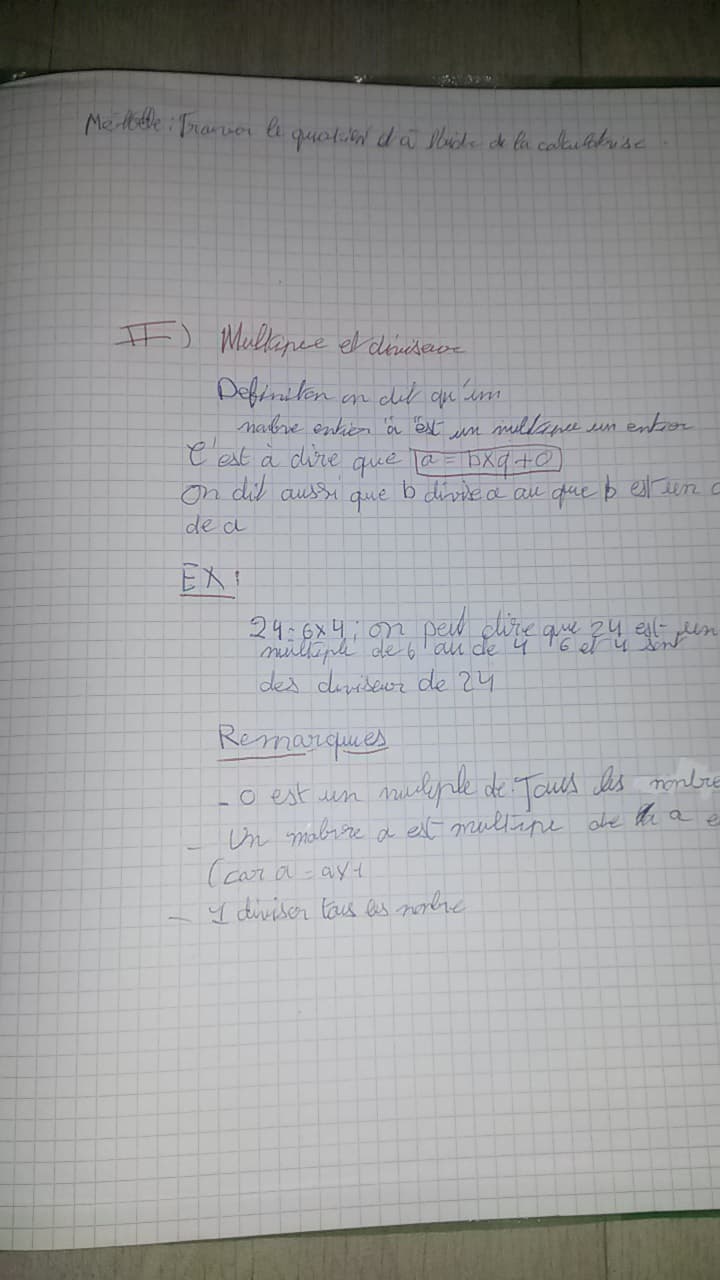 Méthode : Trouver le quotien d à l'aide de la calculatrise.
II) Multiplee et diviseur
Definiton on dit qu'un
nobre entier "a" est un multiplee un entier
C'est à dire que a = b×q+0
On dit aussi que b divise a ou que b est un d
de a
EX :
24 = 6×4 ; on peut dire que 24 est un
multiple de 6 ou de 4 6 et 4 sont
des diviseur de 24
Remarques
- 0 est un muliple de Tous les nonbre
- Un nobre a est multipe de a e
(car a = a×1
- 1 diviser tous les nonbre